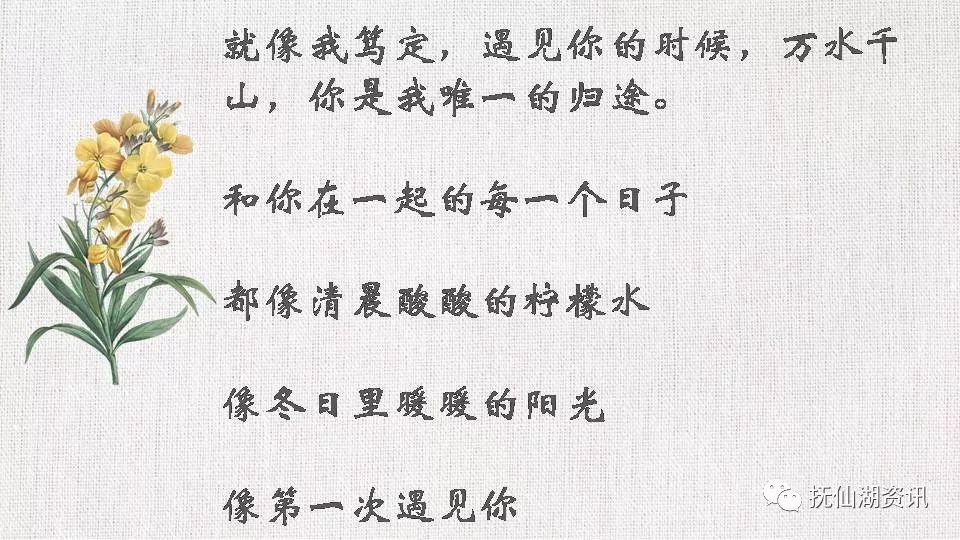 就像我笃定，遇见你的时候，万水千
山，你是我唯一的归途。
和你在一起的每一个日子
都像清晨酸酸的柠檬水
像冬日里暖暖的阳光
像第一次遇见你
抚仙湖资讯